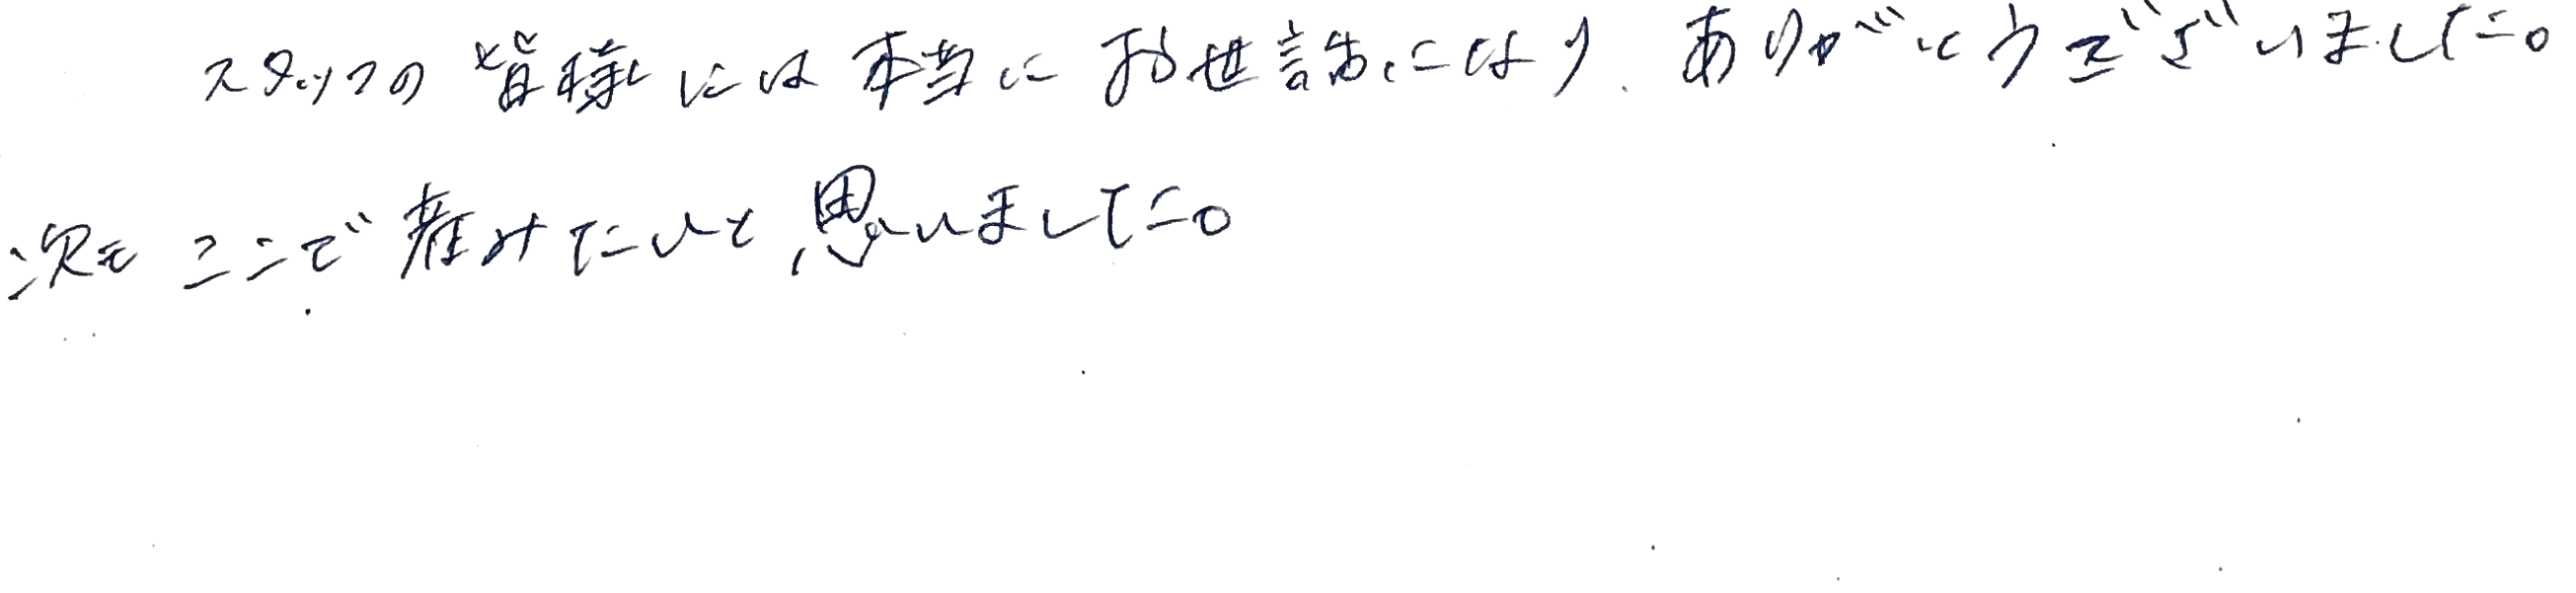 スタッフの皆様には本当にお世話になり、ありがとうございました。
次もここで産みたいと思いました。